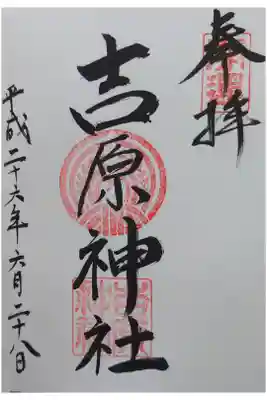 奉拝
吉原神社
平成二十六年六月二十八日